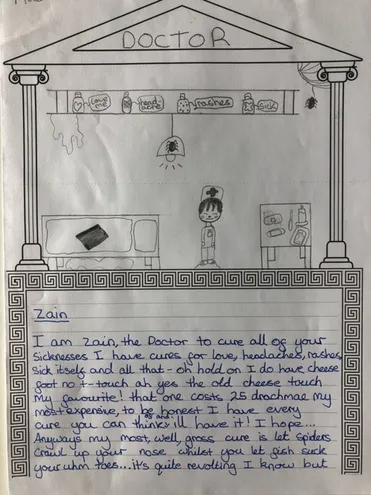 DOCTOR
Love me
head- ache
rashes
Sick
Zain
I am Zain, the Doctor to cure all of your
Sicknesses I have cures for love, headaches, rashes,
Sick itself and all that - oh hold on I do have cheese
foot no t-touch ah yes the old cheese touch
My favourite! that one costs 25 drachmae my
most expensive, to be honest I have every
cure you can think as and ill have it! I hope...
Anyways my most, well, gross cure is let spiders
Crawl up your nose whilst you let fish suck
your uhm toes...it's quite revolting I know but